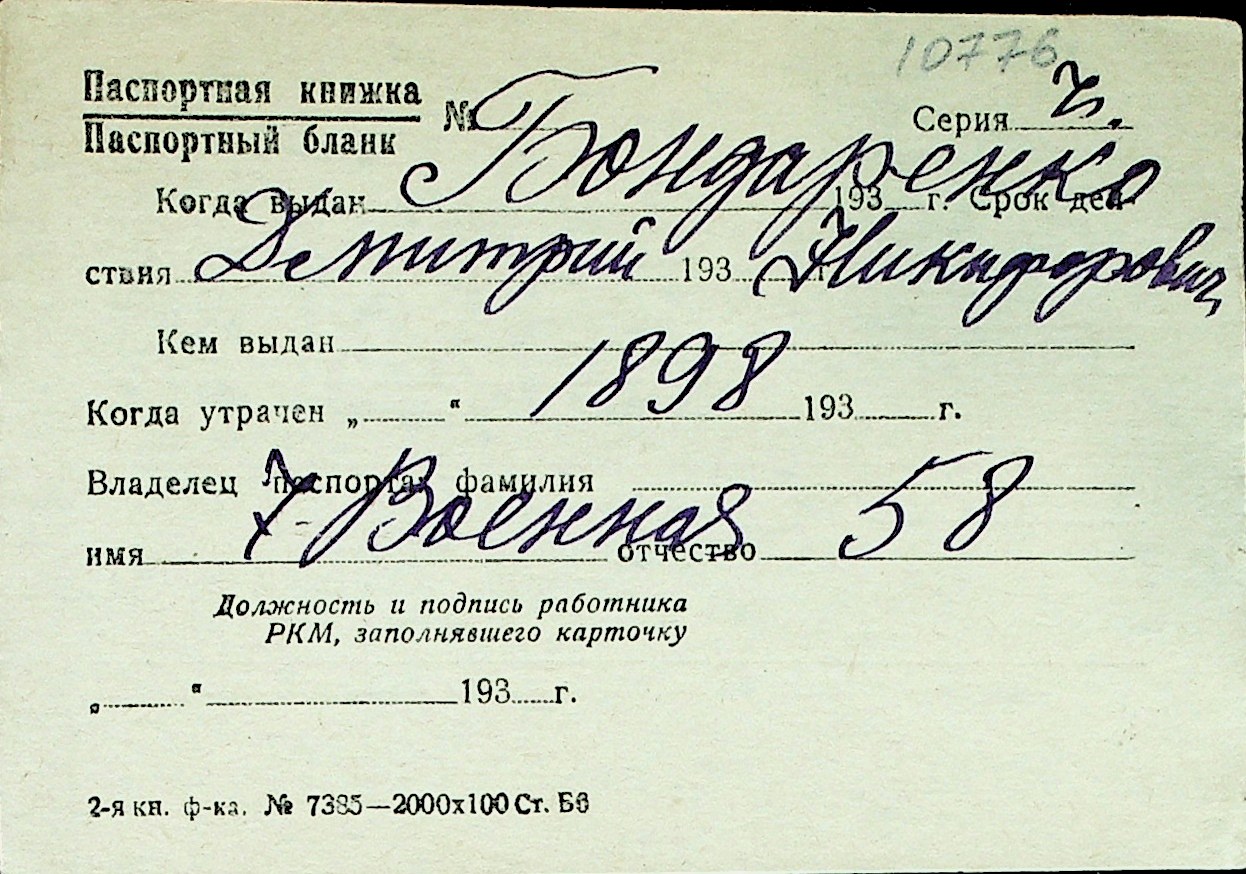 10776
Паспортная книжка
Паспортный бланк
№ Серия ч.
Бондаренко
Когда выдан 193 г. Срок дей-
ствия Дмитрий 193 г. Никифорович
Кем выдан
1898
Когда утрачен „ “ 193 г.
Владелец паспорта: фамилия
Военная 58
имя отчество
Должность и подпись работника
РКМ, заполнявшего карточку
„ “ 193 г.
2-я кн. ф-ка. № 7385—2000х100 Ст. Бб